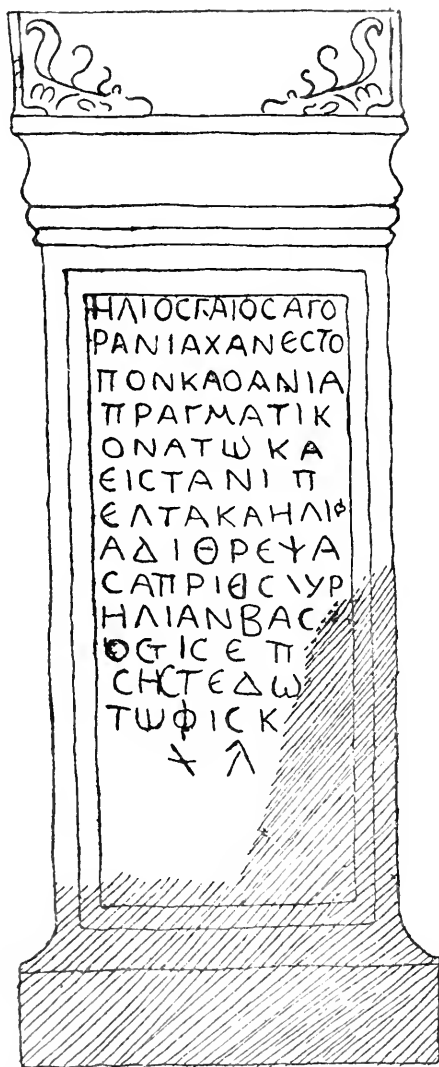 ΗΛΙΟϹΓΑΙΟϹΑΓΟ
ΡΑΝΙΑΧΑΝΕϹΤΟ
ΠΟΝΚΑΟΑΝΙΑ
ΠΡΑΓΜΑΤΙΚ
ΟΝΑΤΩΚΑ
ΕΙϹΤΑΝΙΠ
ΕΛΤΑΚΑΗΛΙΦ
ΑΔΙΘΡΕΨΑ
ϹΑΠΡΙΘϹΛΥΡ
ΗΛΙΑΝΒΑϹ
ΟϾΙϹΕΠ
ϹΗϹΤΕΔΩ
ΤΩΦΙϹΚ
Χ Λ